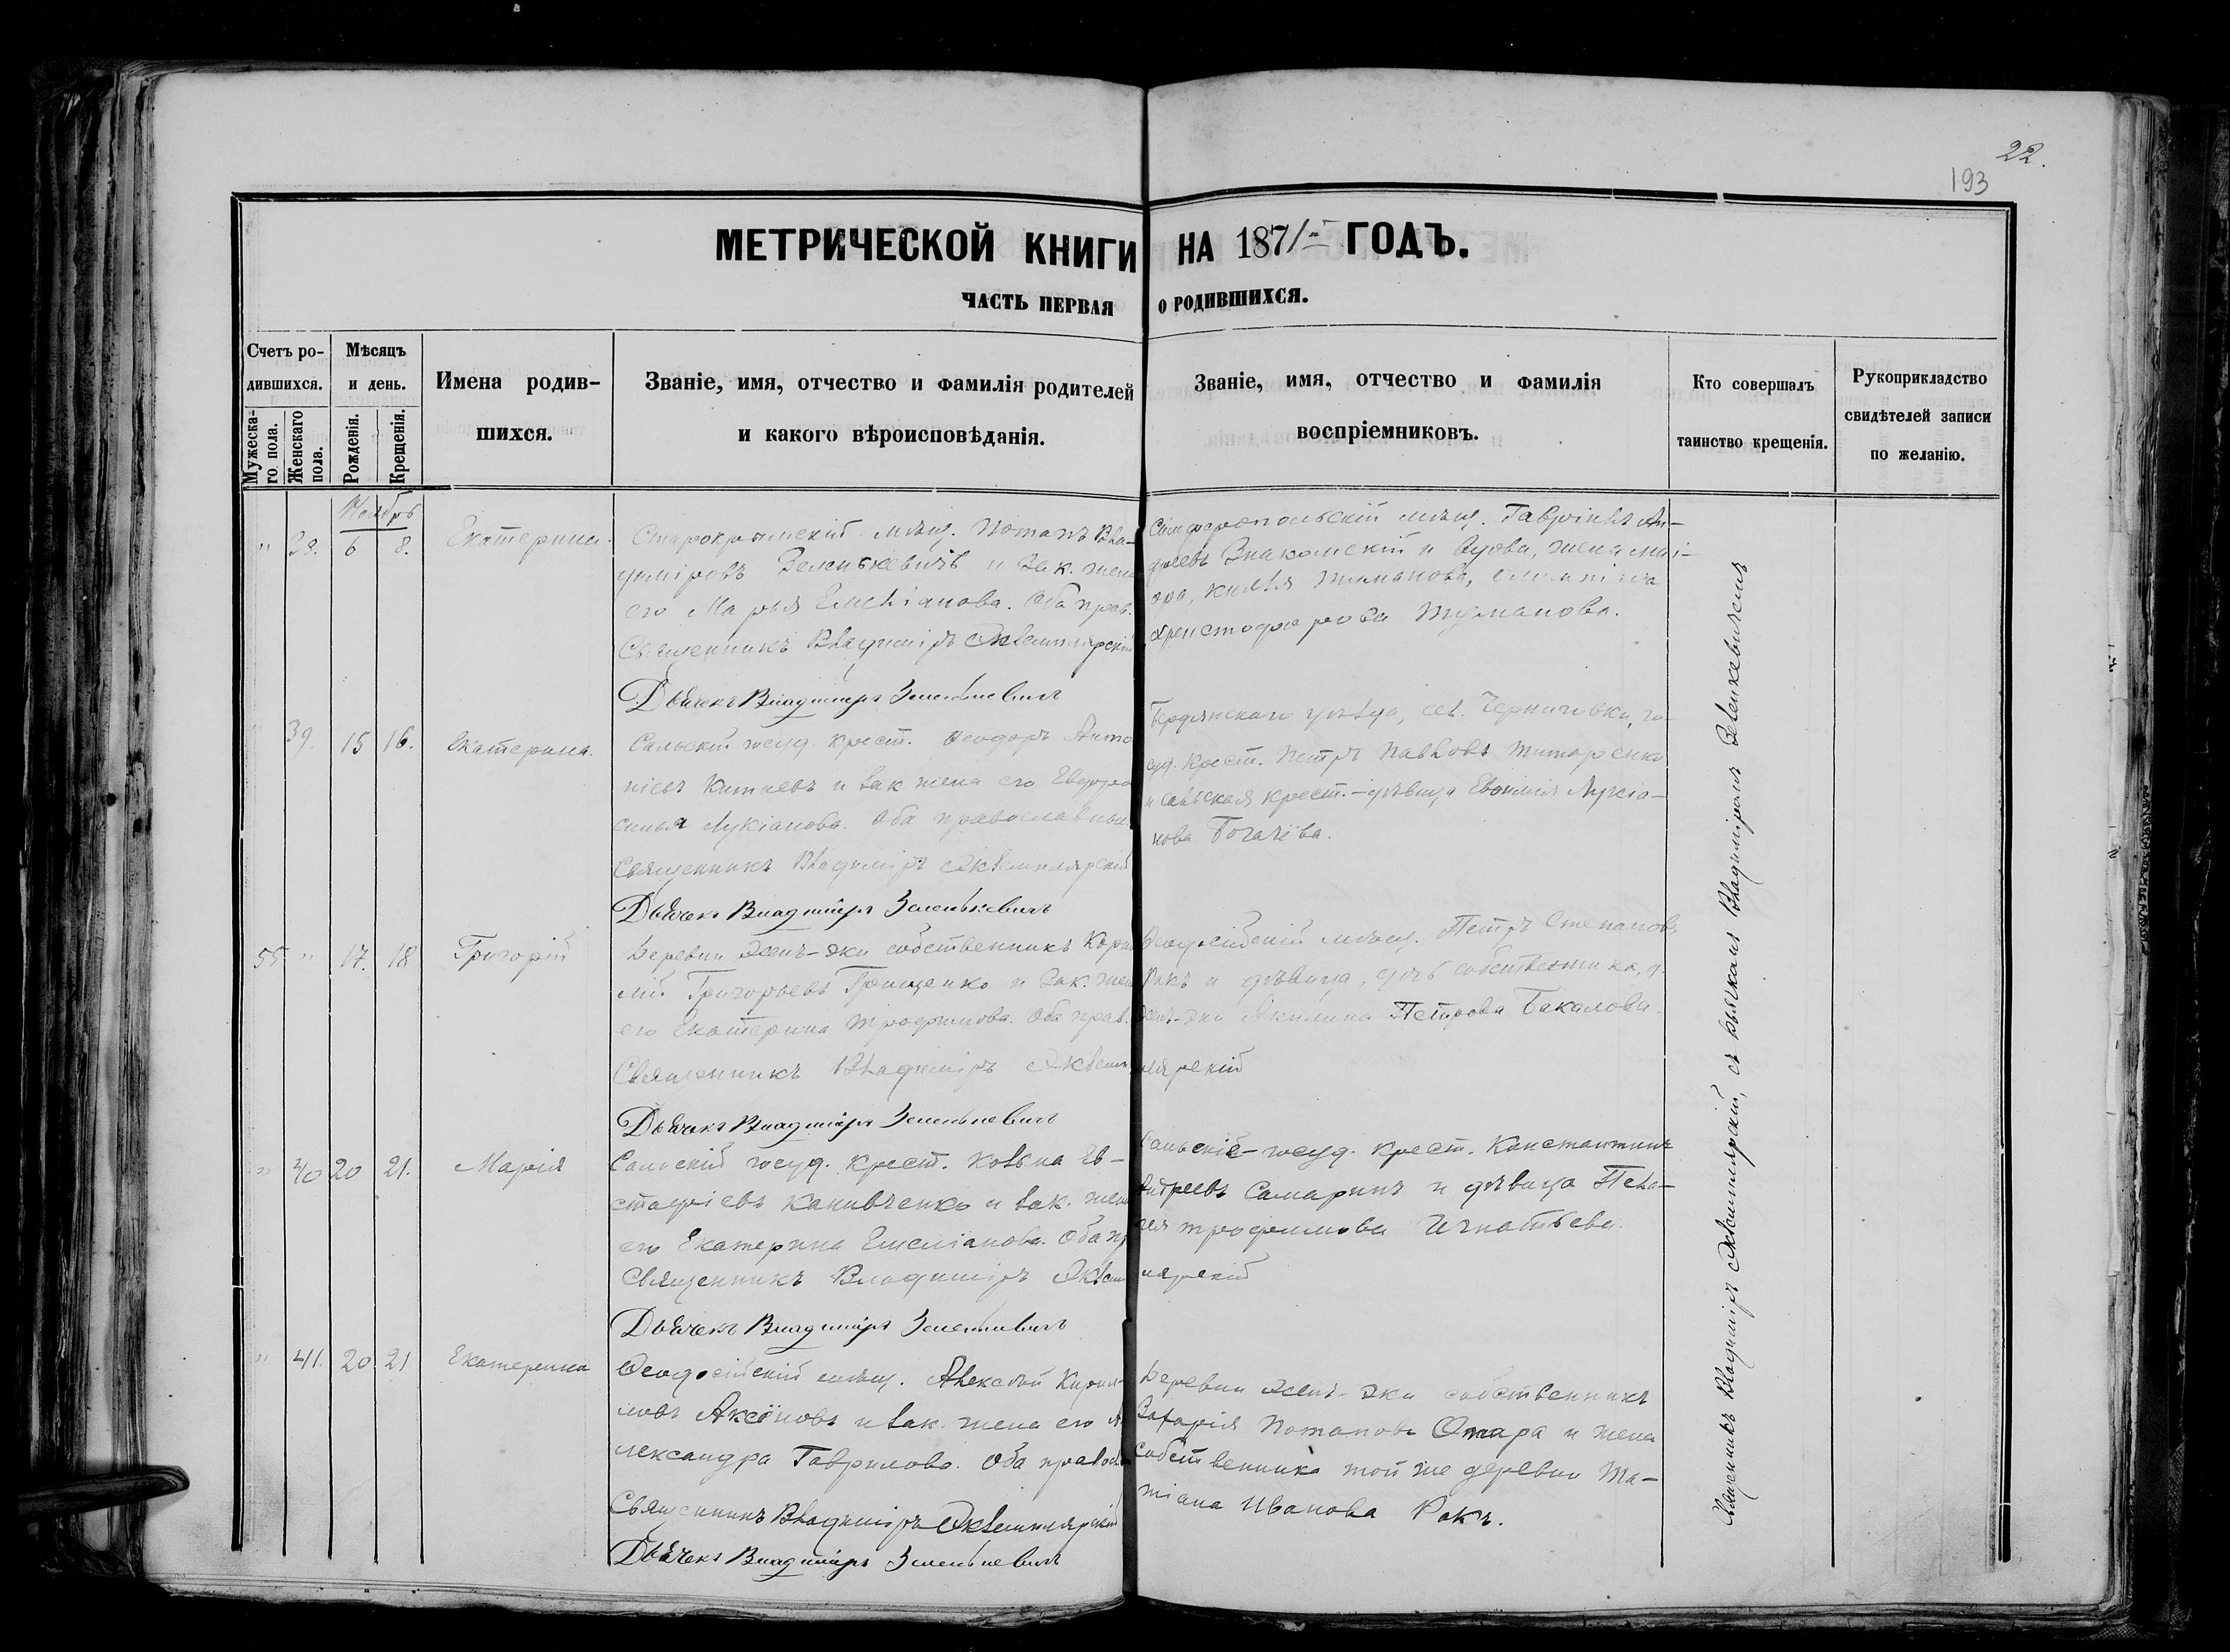 22.
193
МЕТРИЧЕСКОЙ КНИГИ НА 1871 ГОДЪ.
ЧАСТЬ ПЕРВАЯ О РОДИВШИХСЯ.
Счетъ ро-
дившихся.
Мужеска-
го пола.
Женскаго
пола.
Мѣсяцъ
и день.
Рожденія.
Крещенія.
Имена родив-
шихся.
Званіе, имя, отчество и фамилія родителей
и какого вѣроисповѣданія.
Званіе, имя, отчество и фамилія
воспріемниковъ.
Кто совершалъ
таинство крещенія.
Рукоприкладство
свидѣтелей записи
по желанію.
Ноябрь
" 38. 6 8.
Екатерина.
Старокрымскій мѣщ. Потапъ Вла-
диміровъ Зеленкевичъ и зак. жена
его Марья Емеліанова. Оба прав.
Священникъ Владиміръ Экземплярскій
Дьячекъ Владиміръ Зеленкевичъ
Симферопольскій мѣщ. Гавріилъ Ан-
дреевъ Знакомскій и вдова, жена маі-
ора, князя Туманова,
Христофорова Туманова.
39. 15 16.
Екатерина.
Сальскій госуд. крест. Ѳеодоръ Анто-
ніевъ Китаевъ и зак. жена его Евфро-
синья Лукіанова. Оба православные
Священникъ Владиміръ Экземплярскій
Дьячекъ Владиміръ Зеленкевичъ
Бердянскаго уѣзда, сел. Черниговки, го-
суд. крест. Петръ Павловъ Титаренко
и сальская крест.-дѣвица Евфимія Лукіа-
нова Богачева.
55 " 17. 18
Григорій
Деревни Джепъ-эки собственникъ Корни-
лій Григорьевъ Грищенко и зак. жена
его Екатерина Трофимова. Оба прав.
Священникъ Владиміръ Экземплярскій
Дьячекъ Владиміръ Зеленкевичъ
Ѳеодосійскій мѣщ. Петръ Степановъ
Ракъ и дѣвица, дочь собственника, д.
Джепъ-эки Акилина Петрова Бакалова.
" 40 20 21.
Марія
Сальскій госуд. крест. Козьма Ев-
стафіевъ Канивченко и зак. жена
его Екатерина Емеліанова. Оба пр.
Священникъ Владиміръ Экземплярскій
Дьячекъ Владиміръ Зеленкевичъ
Сальскіе госуд. крест. Константинъ
Андреевъ Самаринъ и дѣвица Пела-
гея Трофимова Игнатьева.
" 41. 20 21
Екатерина
Ѳеодосійскій мѣщ. Алексѣй Кирил-
ловъ Аксёновъ и зак. жена его А-
лександра Гаврилова. Оба правосл.
Священникъ Владиміръ Экземплярскій
Дьячекъ Владиміръ Зеленкевичъ
Деревни Джепъ-эки собственникъ
Захарія Потаповъ Отара и жена
собственника той же деревни Та-
тіана Иванова Ракъ.
Священникъ Владиміръ Экземплярскій, съ дьячкомъ Владиміромъ Зеленкевичемъ